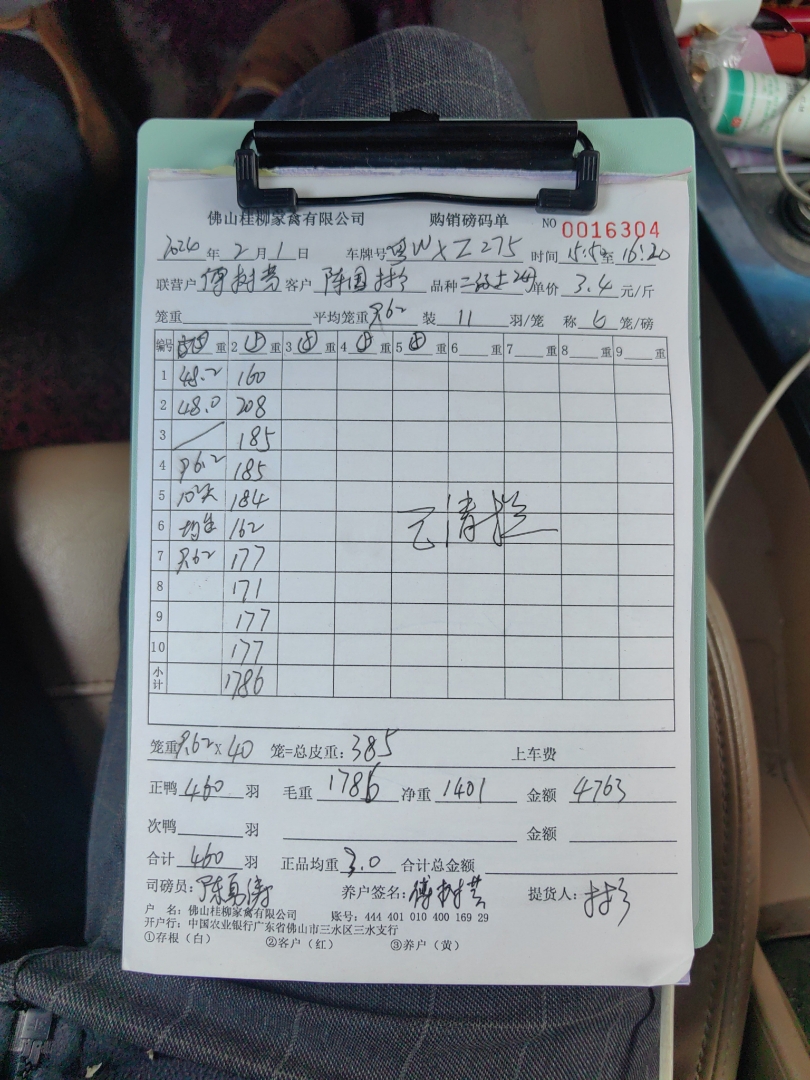 佛山桂柳家禽有限公司 购销磅码单 NO 0016304
2024年2月1日 车牌号粤WXZ275 时间15:50至16:20
联营户 傅树芸 客户 陈国 品种 单价 3.4 元/斤
笼重 平均笼重9.62 装 11 羽/笼 称 6 笼/磅
编号 重 2 重 3 重 4 重 5 重 6 重 7 重 8 重 9 重
1 48.2 160
2 48.0 208
3 185
4 96.2 185
5 184
6 162
7 9.62 177
8 171
9 177
10 177
小计 1786
已清
笼重9.62×40 笼=总皮重:385 上车费
正鸭 460 羽 毛重 1786 净重 1401 金额 4763
次鸭 羽 金额
合计 460 羽 正品均重 3.0 合计总金额
司磅员:陈勇涛 养户签名:傅树芸 提货人:
户 名:佛山桂柳家禽有限公司 账号:444 401 010 400 169 29
开户行:中国农业银行广东省佛山市三水区三水支行
①存根(白) ②客户(红) ③养户(黄)